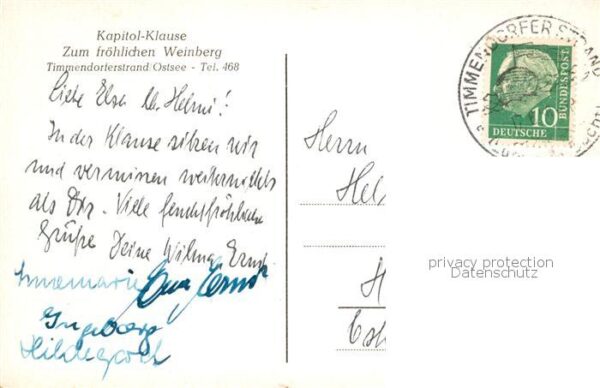 Kapitol-Klause
Zum fröhlichen Weinberg
Timmendorferstrand/Ostsee - Tel. 468
Liebe Elsa u. Helmi!
In der Klause sitzen wir
und vermissen weiter nichts
als Dir. Viele feuchtfröhliche
Grüße Deine Wilma Ernst
Annemarie
Ingeborg
Hildegard
Herrn
Hel
H
Esch
TIMMENDORFER STRAND
10
DEUTSCHE
BUNDESPOST
privacy protection
Datenschutz